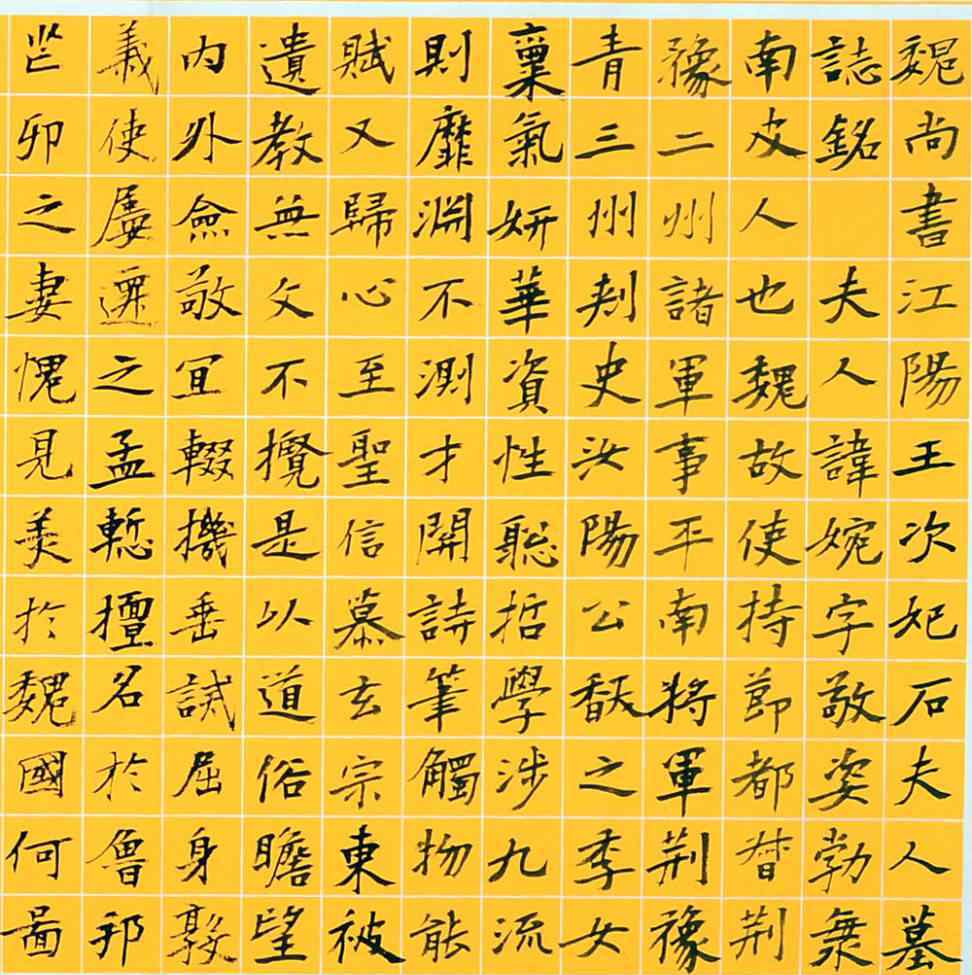 魏尚書江陽王次妃石夫人墓
誌銘 夫人諱婉字敬姿勃海
南皮人也魏故使持節都督荊
豫二州諸軍事平南將軍荊豫
青三州刺史汝陽公馛之季女
稟氣妍華資性聡哲學涉九流
則靡淵不測才開詩筆觸物能
賦又歸心至聖信慕玄宗東被
遺教無文不攬是以道俗瞻望
內外僉敬冝輟機垂試屈身敦
義使屢遷之孟慙擅名於魯邦
芒卯之妻愧見美於魏國何啚